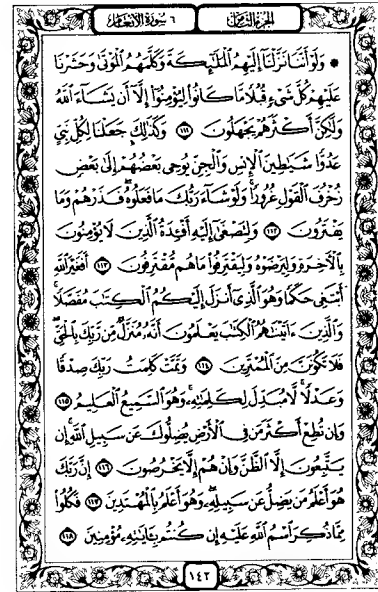 الجزء الثامن ٦ سورة الأنعام
۞ وَلَوْ أَنَّنَا نَزَّلْنَا إِلَيْهِمُ الْمَلَٰئِكَةَ وَكَلَّمَهُمُ الْمَوْتَىٰ وَحَشَرْنَا
عَلَيْهِمْ كُلَّ شَىْءٍ قُبُلًا مَّا كَانُوا لِيُؤْمِنُوا إِلَّا أَن يَشَاءَ اللَّهُ
وَلَٰكِنَّ أَكْثَرَهُمْ يَجْهَلُونَ ١١١ وَكَذَٰلِكَ جَعَلْنَا لِكُلِّ نَبِىٍّ
عَدُوًّا شَيَٰطِينَ الْإِنسِ وَالْجِنِّ يُوحِى بَعْضُهُمْ إِلَىٰ بَعْضٍ
زُخْرُفَ الْقَوْلِ غُرُورًا وَلَوْ شَاءَ رَبُّكَ مَا فَعَلُوهُ فَذَرْهُمْ وَمَا
يَفْتَرُونَ ١١٢ وَلِتَصْغَىٰ إِلَيْهِ أَفْـِٔدَةُ الَّذِينَ لَا يُؤْمِنُونَ
بِالْآخِرَةِ وَلِيَرْضَوْهُ وَلِيَقْتَرِفُوا مَا هُم مُّقْتَرِفُونَ ١١٣ أَفَغَيْرَ اللَّهِ
أَبْتَغِى حَكَمًا وَهُوَ الَّذِى أَنزَلَ إِلَيْكُمُ الْكِتَٰبَ مُفَصَّلًا
وَالَّذِينَ ءَاتَيْنَٰهُمُ الْكِتَٰبَ يَعْلَمُونَ أَنَّهُ مُنَزَّلٌ مِّن رَّبِّكَ بِالْحَقِّ
فَلَا تَكُونَنَّ مِنَ الْمُمْتَرِينَ ١١٤ وَتَمَّتْ كَلِمَتُ رَبِّكَ صِدْقًا
وَعَدْلًا لَّا مُبَدِّلَ لِكَلِمَٰتِهِ وَهُوَ السَّمِيعُ الْعَلِيمُ ١١٥
وَإِن تُطِعْ أَكْثَرَ مَن فِى الْأَرْضِ يُضِلُّوكَ عَن سَبِيلِ اللَّهِ إِن
يَتَّبِعُونَ إِلَّا الظَّنَّ وَإِنْ هُمْ إِلَّا يَخْرُصُونَ ١١٦ إِنَّ رَبَّكَ
هُوَ أَعْلَمُ مَن يَضِلُّ عَن سَبِيلِهِ وَهُوَ أَعْلَمُ بِالْمُهْتَدِينَ ١١٧ فَكُلُوا
مِمَّا ذُكِرَ اسْمُ اللَّهِ عَلَيْهِ إِن كُنتُم بِـَٔايَٰتِهِ مُؤْمِنِينَ ١١٨
١٤٢